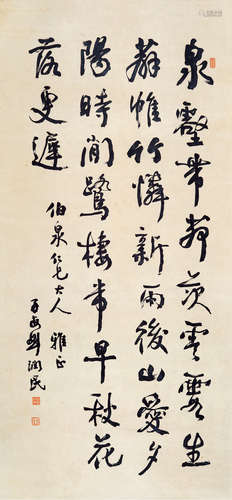 泉壑帶茅茨雲霞生
薜帷竹憐新雨後山愛夕
陽時閒鷺棲常早秋花
落更遲
伯泉仁兄大人 雅正
劉潤民